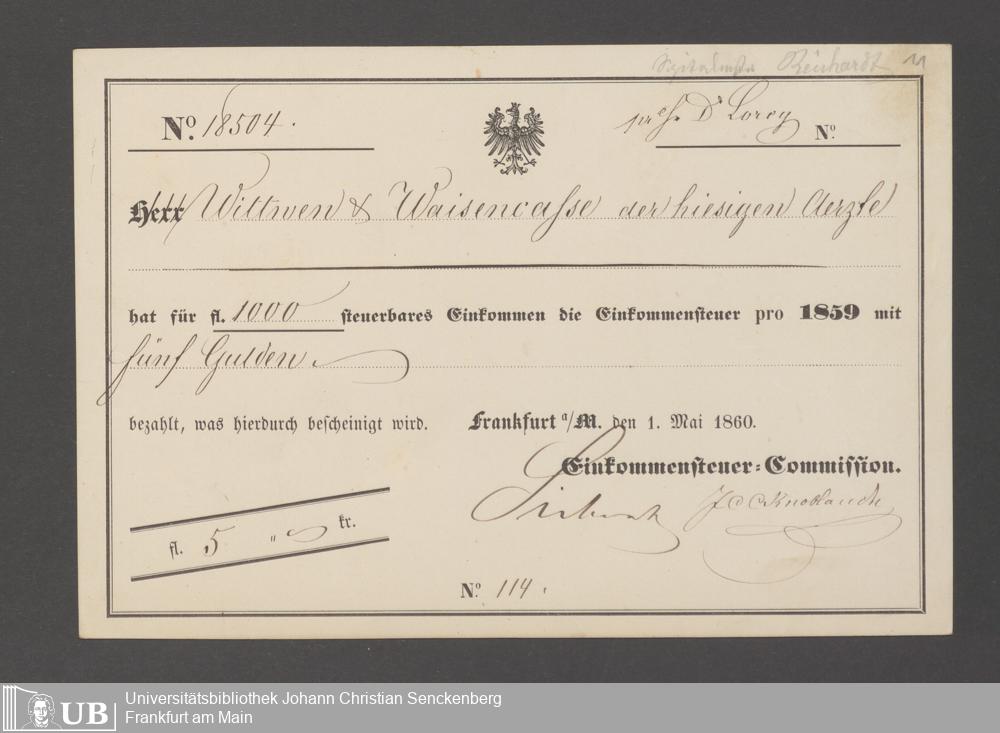 Reinhardt 11
No. 18504. Dr Lorey No.
Herr Wittwen & Waisencasse der hiesigen Aerzte
hat für fl. 1000 steuerbares Einkommen die Einkommensteuer pro 1859 mit
fünf Gulden
bezahlt, was hierdurch bescheinigt wird. Frankfurt a/M. den 1. Mai 1860.
Einkommensteuer-Commission.
fl. 5 " kr.
No. 114.
UB
Universitätsbibliothek Johann Christian Senckenberg
Frankfurt am Main